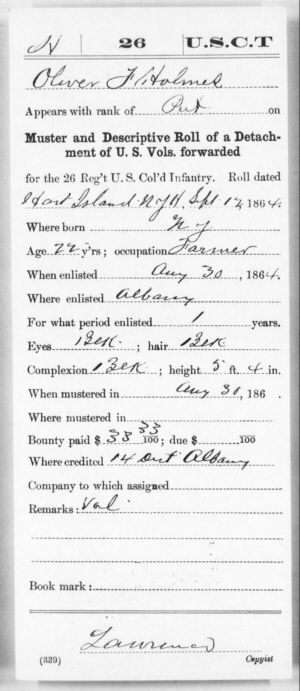 H 26 U.S.C.T
Oliver F Holmes
Appears with rank of Pvt on
Muster and Descriptive Roll of a Detach-
ment of U. S. Vols. forwarded
for the 26 Reg't U. S. Col'd Infantry. Roll dated
Hart Island N.Y.H. Sept 12, 1864.
Where born N.Y
Age 22 y'rs; occupation Farmer
When enlisted Aug 30, 1864.
Where enlisted Albany
For what period enlisted 1 years.
Eyes Blk ; hair Blk
Complexion Blk ; height 5 ft. 4 in.
When mustered in Aug 30, 186 .
Where mustered in
Bounty paid $ 33 33/100; due $ /100
Where credited 14 Dist Albany
Company to which assigned
Remarks: Vol
Book mark:
Lawrence
(339) Copyist